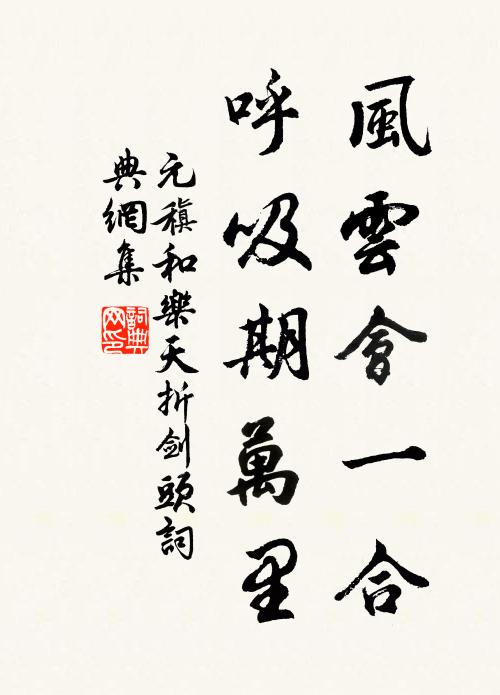 風雲會一合
呼吸期萬里
元稹和樂天折劍頭詞
典網集
詞典
网印